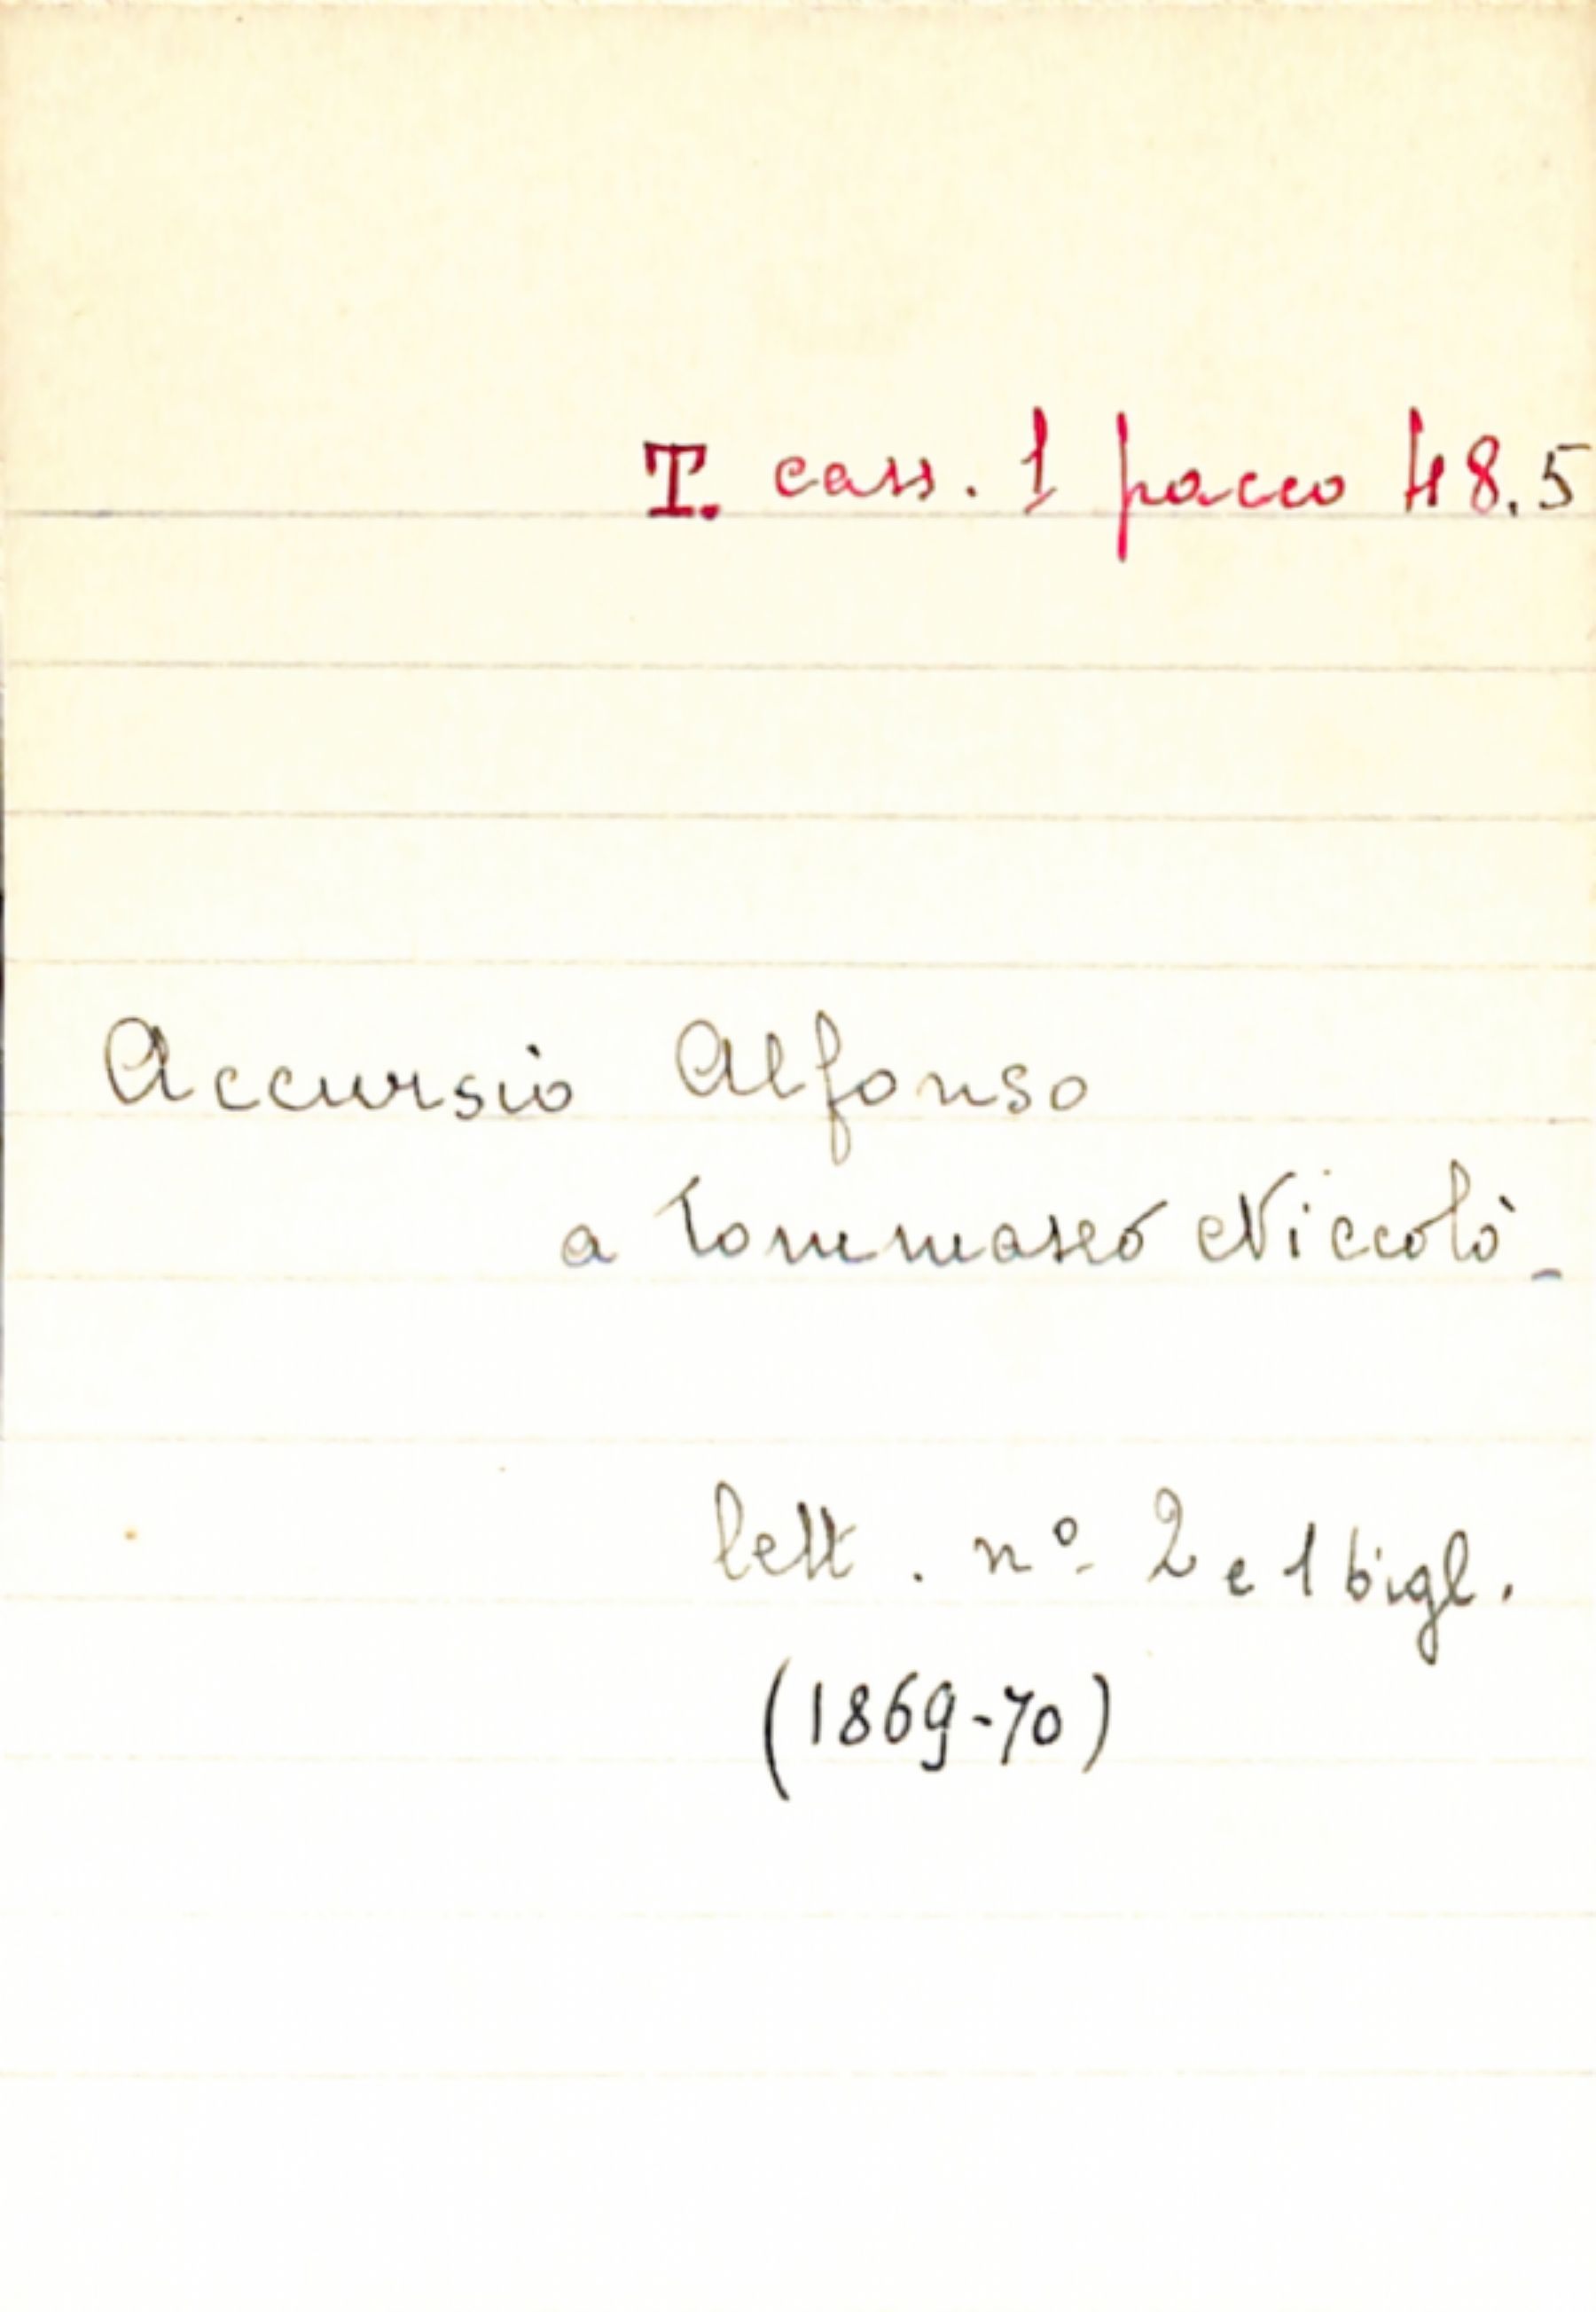 T. cass. 1 pacco 48.5
Accursio Alfonso
a Tommaseo Niccolò -
lett. nº 2 e 1 bigl.
(1869-70)